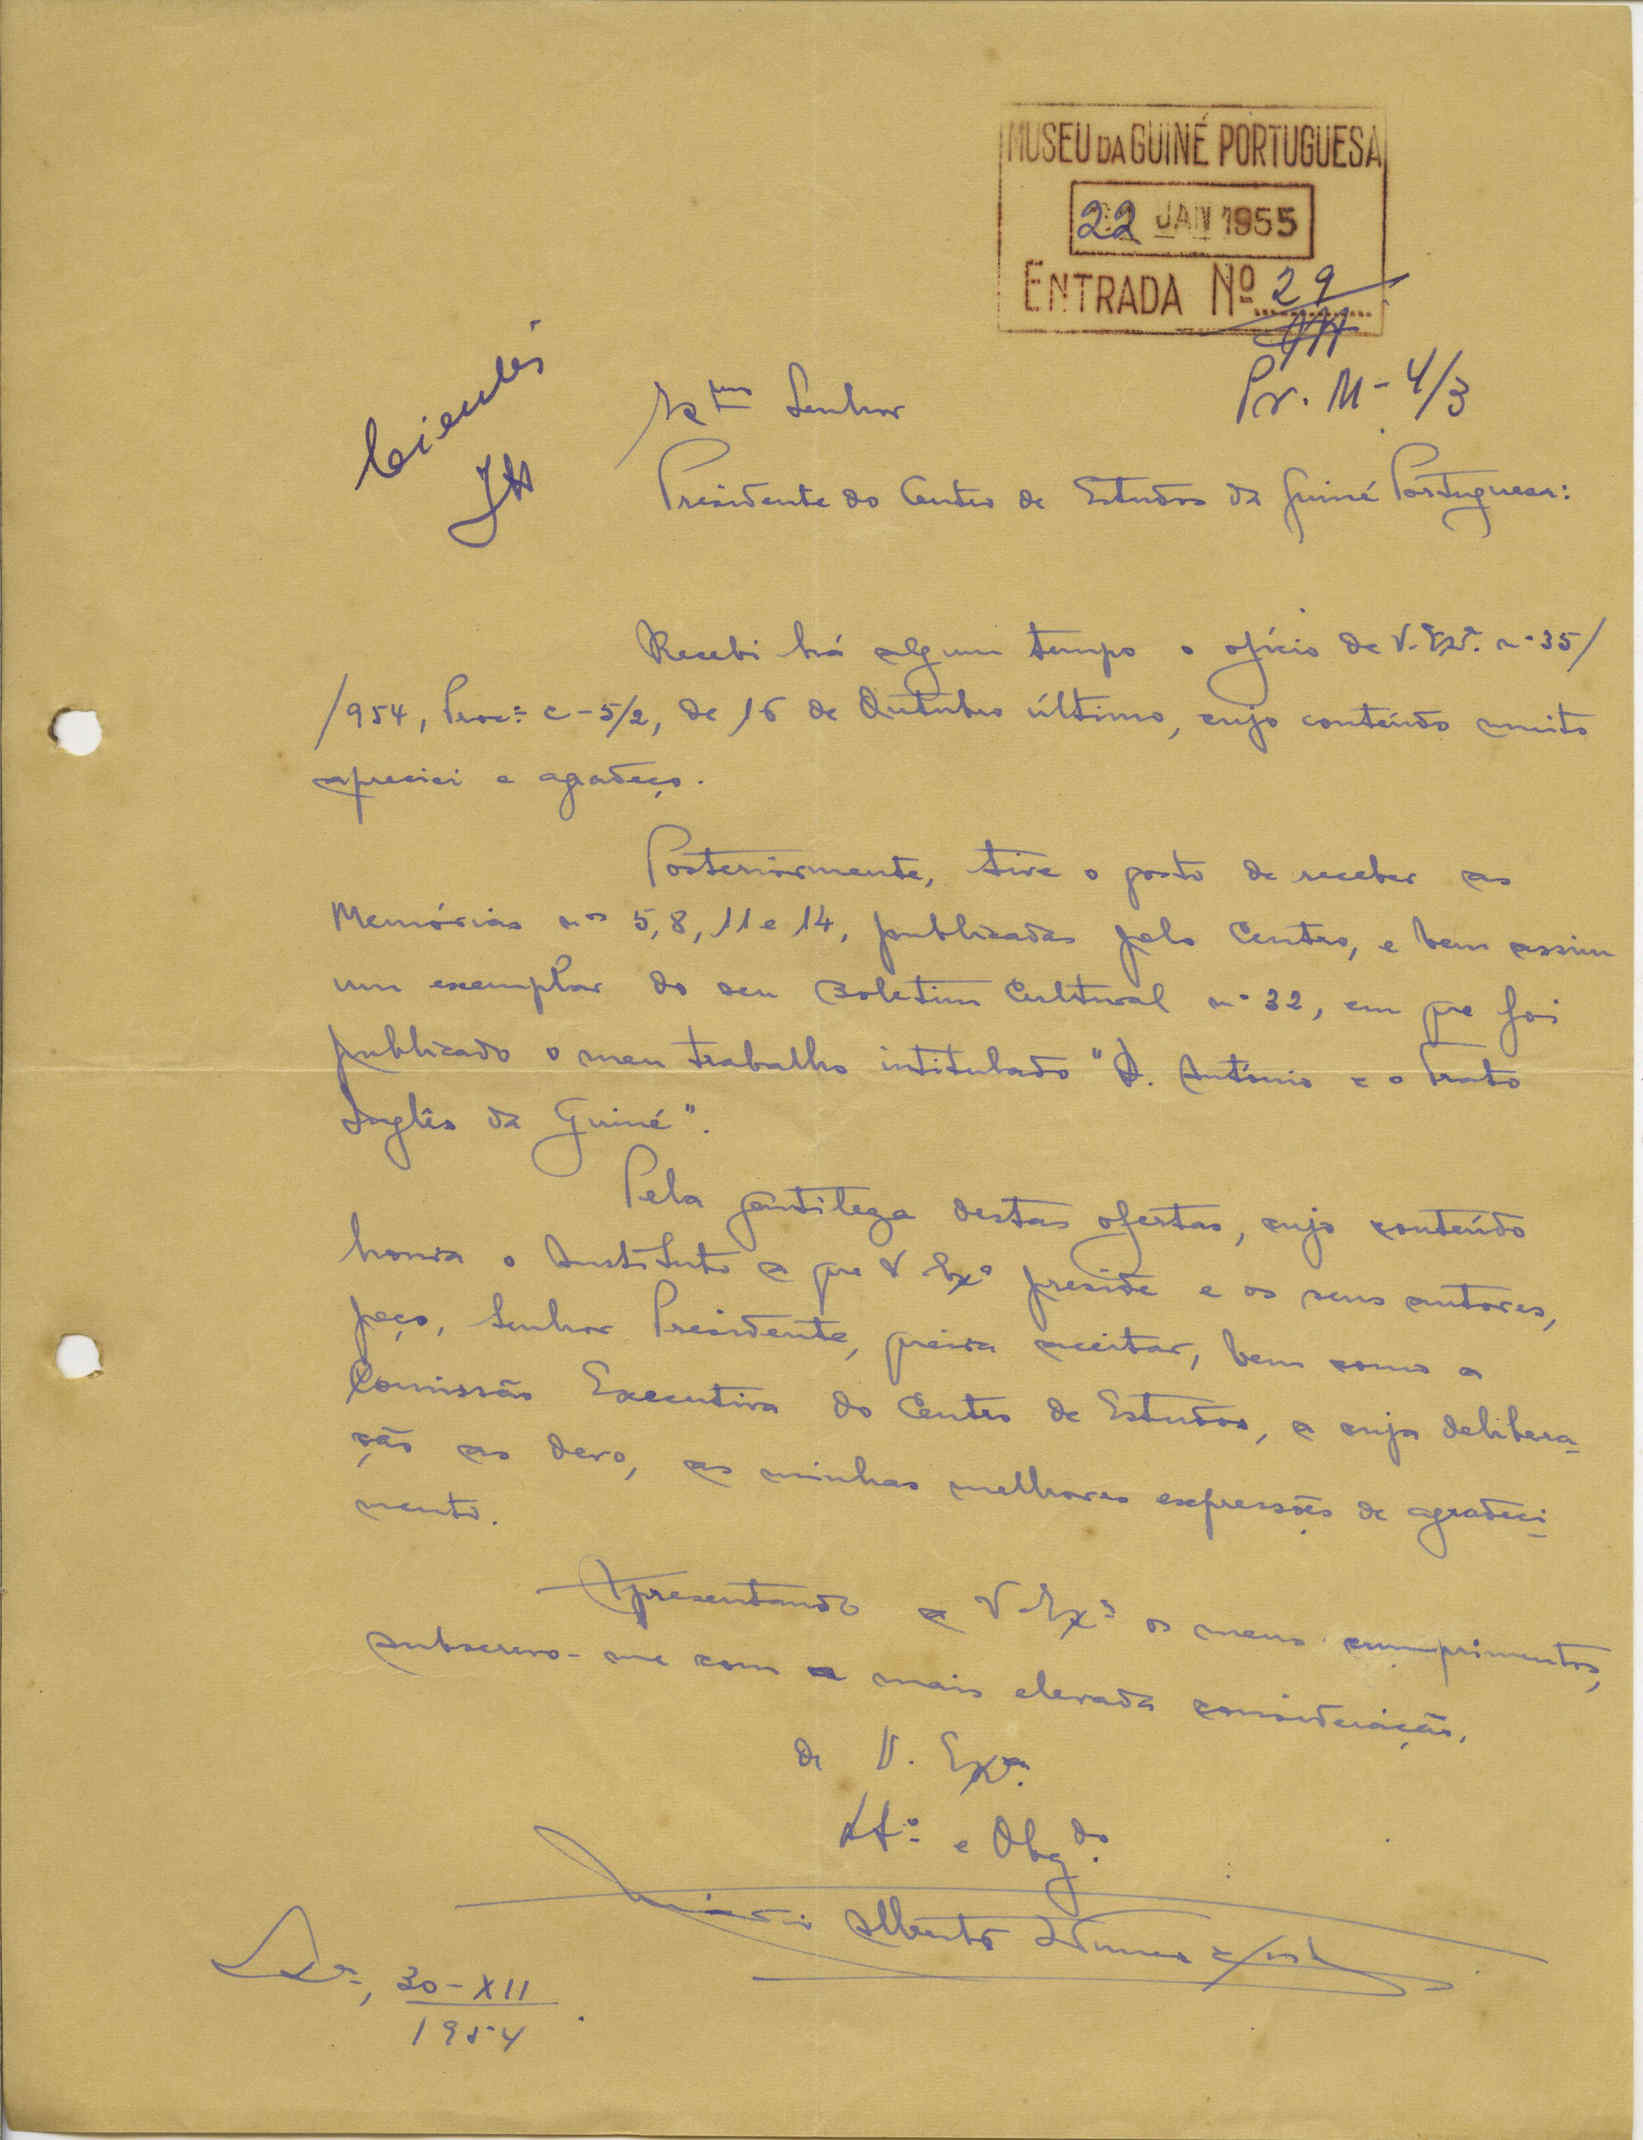 MUSEU DA GUINÉ PORTUGUESA
22 JAN 1955
ENTRADA Nº 29
Pr. M-4/3
Ciente
Exmo Senhor
Presidente do Centro de Estudos da Guiné Portuguesa:
Recebi há algum tempo o ofício de V. Exª. nº 35/
/954, Procº C-5/2, de 16 de Outubro último, cujo conteúdo muito
apreciei e agradeço.
Posteriormente, tive o gosto de receber as
Memórias nos 5, 8, 11 e 14, publicadas pelo Centro, e bem assim
um exemplar do seu Boletim Cultural nº 32, em que foi
publicado o meu trabalho intitulado "D. António e o Trato
Inglês da Guiné".
Pela gentileza destas ofertas, cujo conteúdo
honra o Instituto a que V. Exª preside e os seus autores,
peço, Senhor Presidente, queira aceitar, bem como a
Comissão Executiva do Centro de Estudos, a cuja delibera-
ção as devo, as minhas melhores expressões de agradeci-
mento.
Apresentando a V. Exª os meus cumprimentos,
subscrevo-me com a mais elevada consideração,
de V. Exª.
Attº e Obgdo.
Mário Alberto Nunes Costa
Lxª, 30-XII
1954